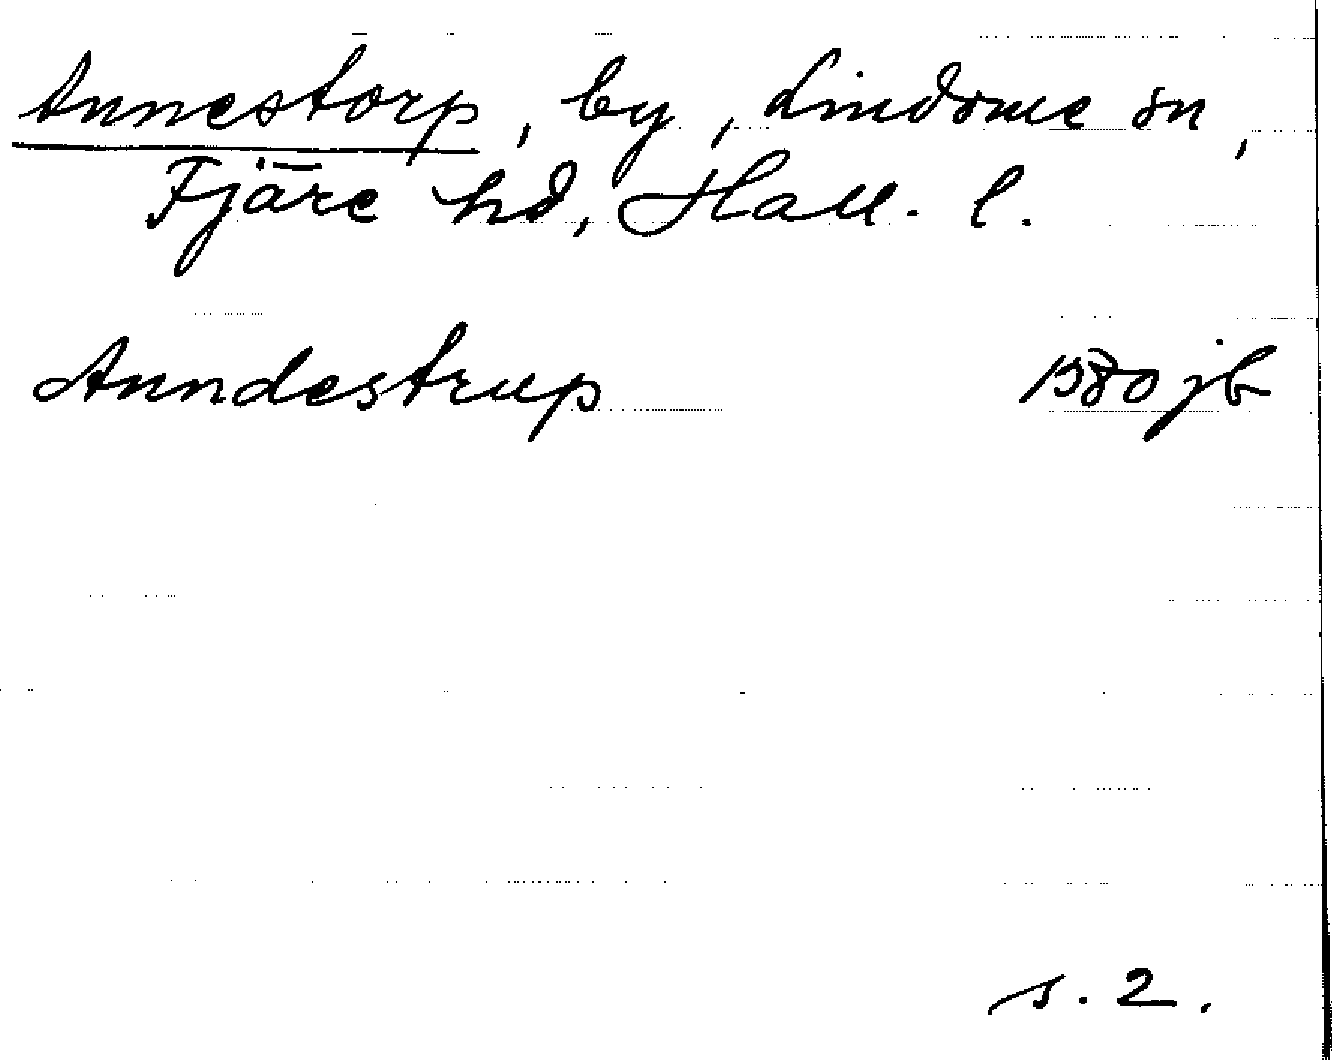 Annestorp, by, Lindome sn,
Fjäre hd, Hall. l.
Anndestrup 1580 jb
s. 2.